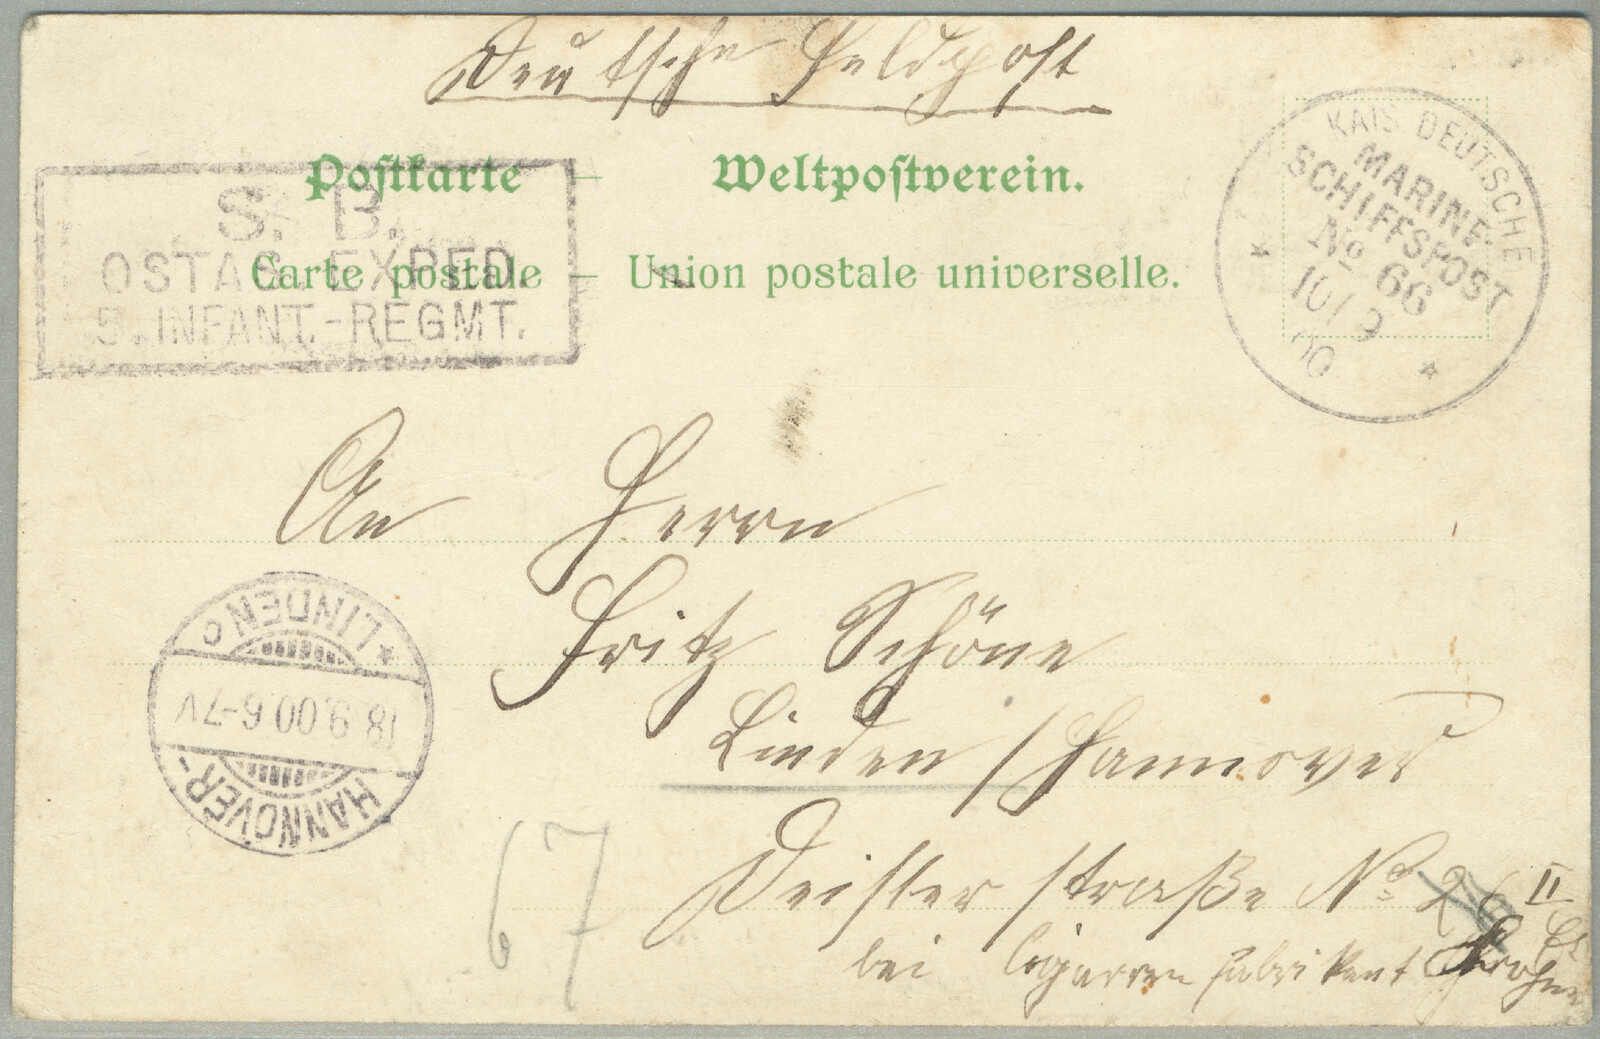 Deutsche Feldpost
Postkarte – Weltpostverein.
Carte postale – Union postale universelle.
S. B.
OSTAS. EXPED.
5. INFANT.-REGMT.
KAIS DEUTSCHE
MARINE-
SCHIFFSPOST
No 66
10/9
00
An Herrn
Fritz Schöne
Linden / Hannover
Deister straße No 26 II
bei Cigarren fabrikant
HANNOVER-
18.9.00.6-7V
*LINDEN c
67